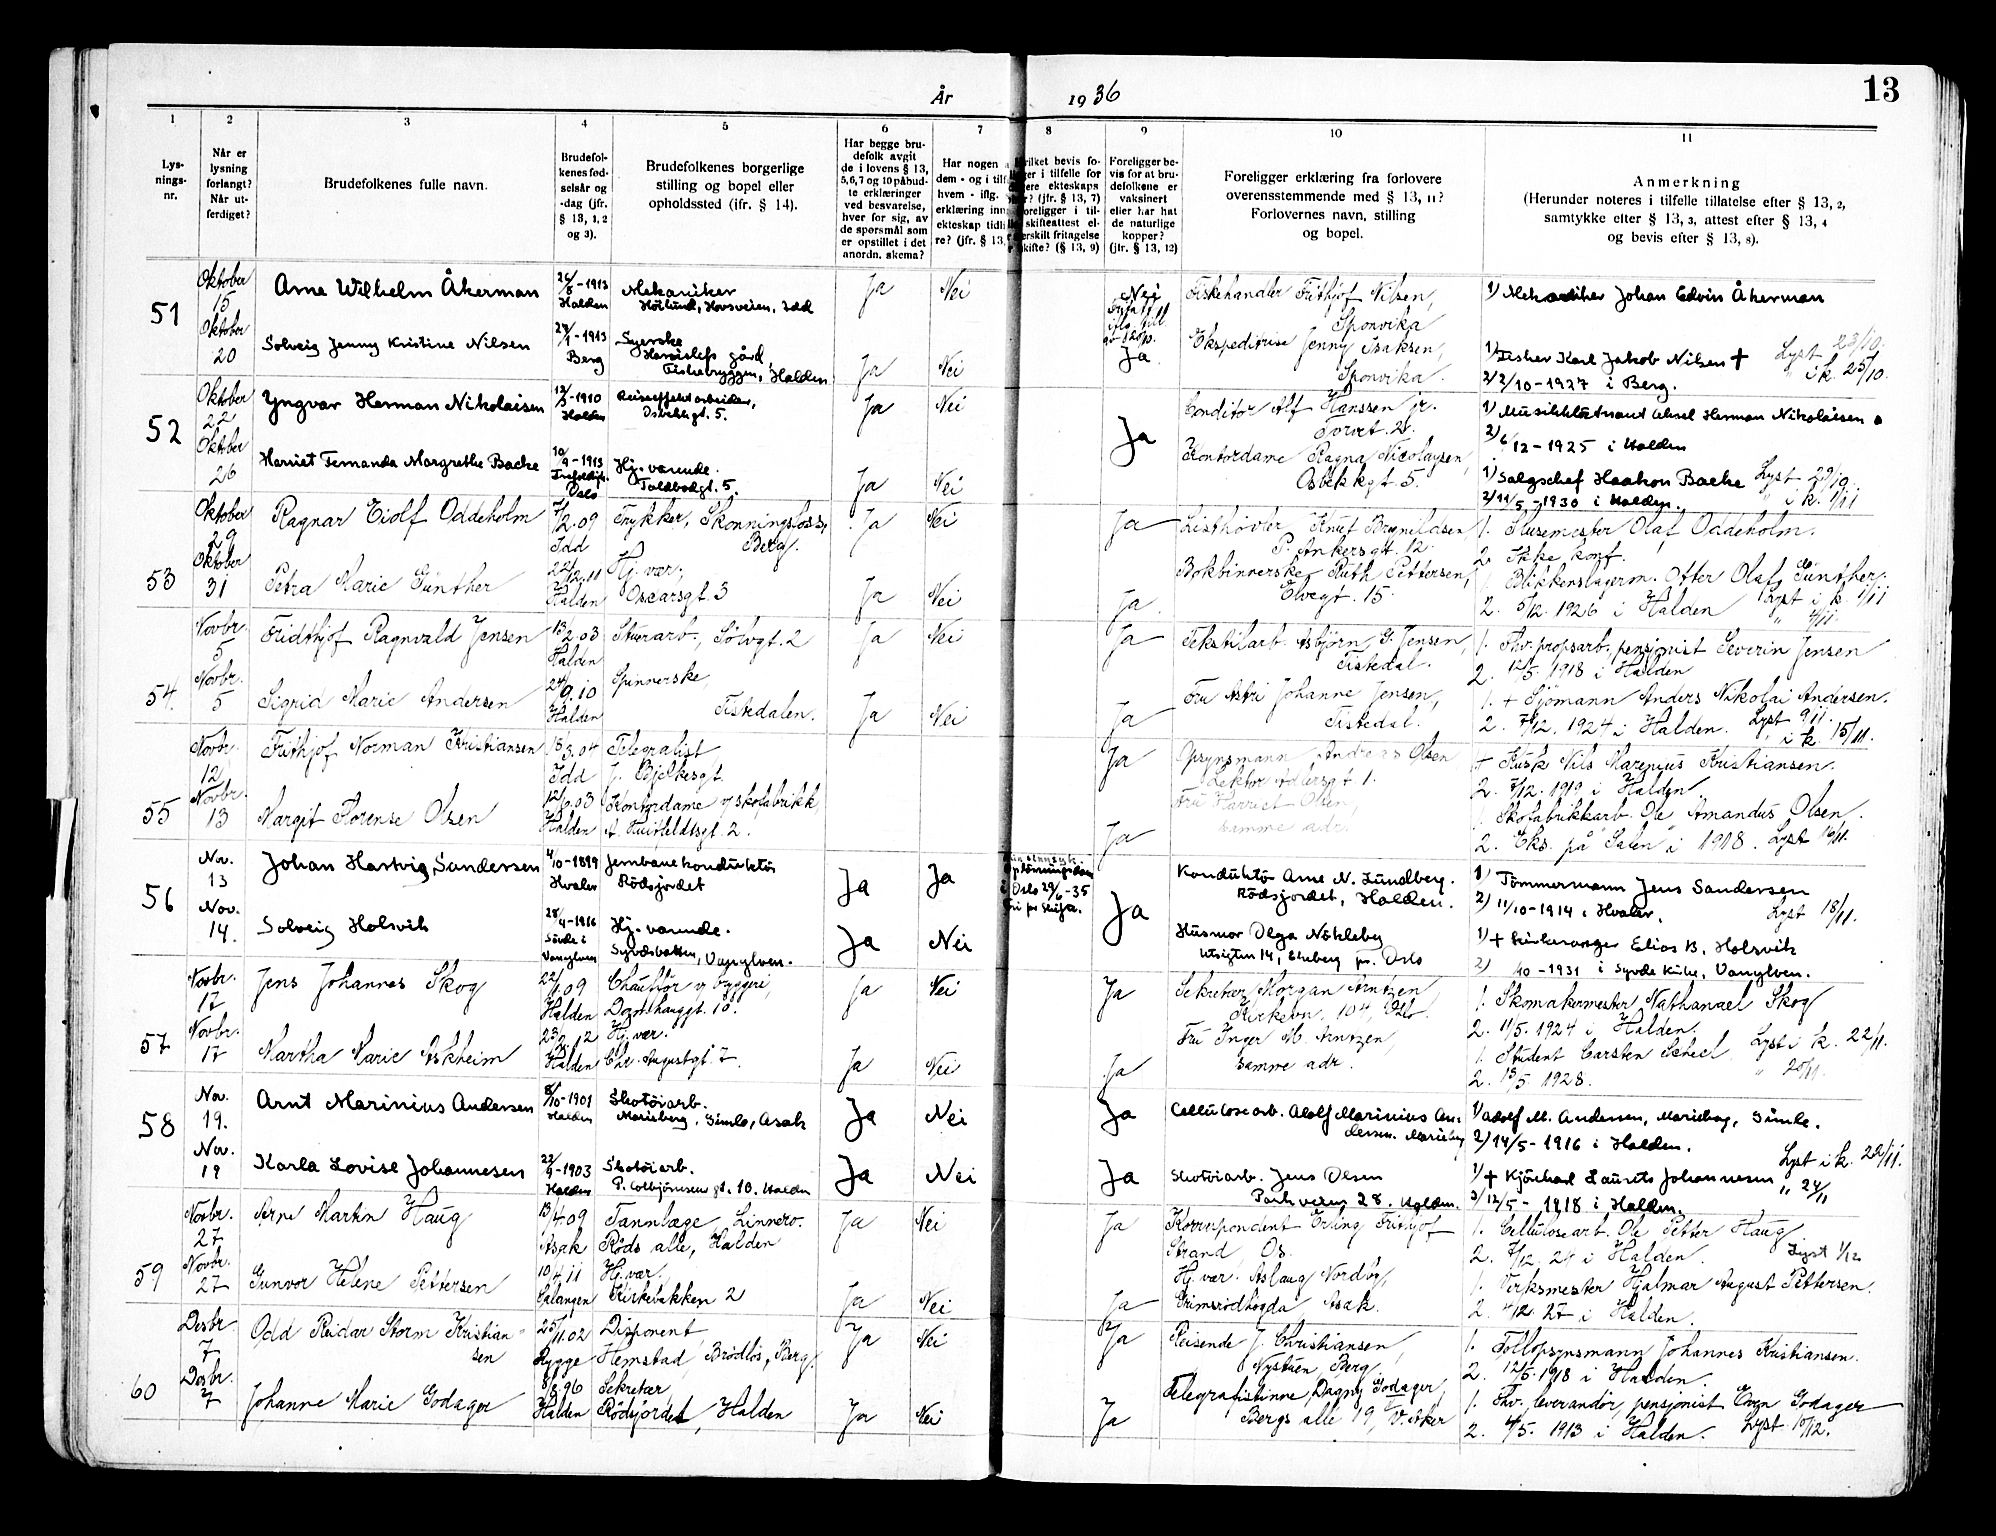 13
År 1936
1 2 3 4 5 6 7 8 9 10 11
Lys-
nings-
nr.
Når er
lysning
forlangt?
Når ut-
ferdiget?
Brudefolkenes fulle navn.
Brudefol-
kenes fød-
selsår og
-dag (jfr.
§ 13, 1, 2
og 3).
Brudefolkenes borgerlige
stilling og bopel eller
opholdssted (ifr. § 14).
Har begge bru-
defolk avgit
de i lovens § 13,
5, 6, 7 og 10 påbud-
te erklæringer
ved besvarelse,
hver for sig, av
de spørsmål som
er opstillet i det
anordn. skema?
Har nogen a
dem - og i tilf
hvem - iflg.
erklæring inn
ekteskap tidli
re? (jfr. § 13,
ilket bevis fo-
ger i tilfelle for
ere ekteskaps
? (jfr. § 13, 7)
oreligger i til-
skifteattest el-
erskilt fritagelse
kifte? (§ 13, 9)
Foreligger be-
vis for at bru-
defolkene er
vaksinert
eller har hat
de naturlige
kopper?
(jfr. § 13, 12)
Foreligger erklæring fra forlovere
overensstemmende med § 13, 11?
Forlovernes navn, stilling
og bopel.
Anmerkning
(Herunder noteres i tilfelle tillatelse efter § 13, 2,
samtykke efter § 13, 3, attest efter § 13, 4
og bevis efter § 13, 8).
51
Oktober
15
Arne Wilhelm Åkerman
26/8-1913
Halden
Mekaniker
Hovsveien, Idd
Ja Nei Nei
Fiskehandler Frithjof Nilsen,
Sponvika
1) Mekaniker Johan Edvin Åkerman
Oktober
20
Solveig Jenny Kristine Nilsen
Berg
Syerske
gård,
Fiskebryggen, Halden
Ja Nei Ja
Ekspeditrise Jenny Isaksen,
Sponvika.
1) Fisker Karl Jakob Nilsen +
2) 2/10-1927 i Berg.
Lyst 23/10.
i k. 25/10.
52
Oktober
22
Yngvar Herman Nikolaisen
-1910
Halden
Reiseeffektarbeider,
gt. 5.
Ja Nei Ja
Conditor Alf Hanssen jr.
Torvet 2.
1) Herman Nikolaisen
2) 6/12-1925 i Halden
Oktober
26
Harriet Fernanda Margrethe Backe
10/9-1913
Oslo
Hj. værende.
Toldbodgt. 5.
Ja Nei
Kontordame Ragna Nicolaysen,
Osbekkgt 5.
1) Salgschef Haakon Backe
2) 11/5-1930 i Halden.
Lyst
i k. 1/11
53
Oktober
29
Ragnar Eiolf Oddeholm
7/2.09
Idd
Trykker, Skonningsfoss,
Berg.
Ja Nei Ja
Listhøvler Knut Brynildsen
P. Ankersgt. 12.
1. Slusemester Olaf Oddeholm.
2. Ikke konf.
Oktober
31
Petra Marie Günther
22/12.11
Halden
Hj. vær.,
Oscarsgt. 3
Ja Nei Ja
Bokbinnerske Ruth Pettersen,
Elvegt. 15.
1. Blikkenslagerm. Otter Olaf Günther.
2. 5/12. 1926 i Halden
Lyst i k. 1/11
54.
Novbr.
5
Fridthjof Ragnvald Jensen
13/2.03
Halden
Stuearb., Sølvgt. 2
Ja Nei Ja
Tekstilarb. Asbjørn G. Jensen,
Tistedal.
1. Fhv. propsarb., pensjonist Severin Jensen
2. 12/5. 1918 i Halden
Novbr.
5
Sigrid Marie Andersen
24/9.10
Halden
Spinnerske,
Tistedalen.
Ja Nei Ja
Fru Astri Johanne Jensen,
Tistedal.
1. + Sjømann Anders Nikolai Andersen.
2. 7/12. 1924 i Halden.
Lyst 9/11.
i k. 15/11.
55
Novbr.
12
Frithjof Norman Kristiansen
18/3.04
Idd
Telegrafist
J. Bjelkesgt.
Ja
Opsynsmann Anders Olsen
Lektor Adlersgt 1.
+ Kusk Nils Marenius Kristiansen.
2. 7/12. 1919 i Halden.
Novbr.
13
Margit Florense Olsen
Halden
Kontordame v/ skofabrikk,
A. Huitfeldtsgt. 2.
Ja
Fru Harriet Olsen,
samme adr.
1. Skofabrikkarb. Ole Amandus Olsen.
2. Eks. på "Salen" i 1918.
Lyst 16/11.
56
Nov.
13
Johan Hartvig Sandersen
4/10-1899
Hvaler
Jernbanekonduktør
Rødsfjordet
Ja Ja
Oslo 29/6-35
Ja
Konduktør Arne N. Lundberg.
Rødsjordet, Halden.
1) Tømmermann Jens Sandersen
2) 11/10-1914 i Hvaler.
Lyst 18/11.
Nov.
14.
Solveig Holsvik
28/4-1916
Vanylven
Hj. værende.
Vanylven.
Ja Nei
Husmor Olga Nökleby
Utsigten 14, Ekeberg pr. Oslo
1) + Kirkesanger Elias B. Holsvik
2) /10-1931 i Syvde Kirke, Vanylven.
57
Novbr.
17
Jens Johannes Skog
22/1.09
Halden
Chauffør v/ byggeri,
Ja Nei Ja
Sekretær Morgan Arntzen
Kirkevn. 104, Oslo.
1. Skomakermester Nathanael Skog
2. 11/5. 1924 i Halden.
Novbr.
17
Martha Marie Askheim
Halden
Hj. vær.
Chr. Augustgt. 7.
Ja Nei Ja
Fru Inger M. Arntzen,
samme adr.
1. Student Carsten Scheel
2. 13/5. 1928.
Lyst i k. 22/11.
58
Nov.
19.
Arnt Marinius Andersen
8/10-1901
Halden
Skotøiarb.
Marieberg, Simlo, Asak
Ja Nei Ja
Cellulosearb. Adolf Marinius An-
dersen. Marieberg
1) Adolf M. Andersen, Marieberg, Simle.
2) 14/5-1916 i Halden.
Nov.
19
Karla Lovise Johannesen
22/9-1903
Halden
Skotøiarb.
P. Colbjørnsens gt. 10. Halden
Ja Nei Ja
Skotøiarb. Jens Olsen
Parkveien 28. Halden.
1) + Kjørekarl Laurits Johannesen
2) 12/5-1918 i Halden.
Lyst i k. 22/11.
" 24/11
59
Novbr.
27
Arne Martin Haug
13/4.09
Asak
Tannlæge, Linnero.
Røds alle, Halden
Ja Nei Ja
Korrespondent Erling Frithjof
Strand, Os.
1. Cellulosearb. Ole Petter Haug
2. 7/12. 24 i Halden.
Lyst 1/12
Novbr.
27
Gunvor Helene Pettersen
10/4.11
Salangen
Hj. vær.
Kirkebakken 2
Ja Nei Ja
Hj. vær. Aslaug Nordby,
Grimsrødhøgda, Asak.
1. Verksmester Hjalmar August Pettersen.
2. 4/12. 27 i Halden.
60
Desbr.
7
Odd Reidar Storm Kristian-
sen
25/11.02
Rygge
Disponent,
Hemstad, Brødløs, Berg.
Ja Nei Ja
Reisende J. Christiansen,
Nystuen Berg.
1. Tollopsynsmann Johannes Kristiansen.
2. 12/5. 1918 i Halden.
Desbr.
7
Johanne Marie Godager
8/8.96
Halden
Sekretær
Rødsjordet, Halden
Ja Nei Ja
Telegrafistinne Dagny Godager,
Bergs alle 19, V. Aker
1. Fhv. leverandør, pensjonist Even Godager
2. 4/5. 1913 i Halden.
Lyst 10/12.